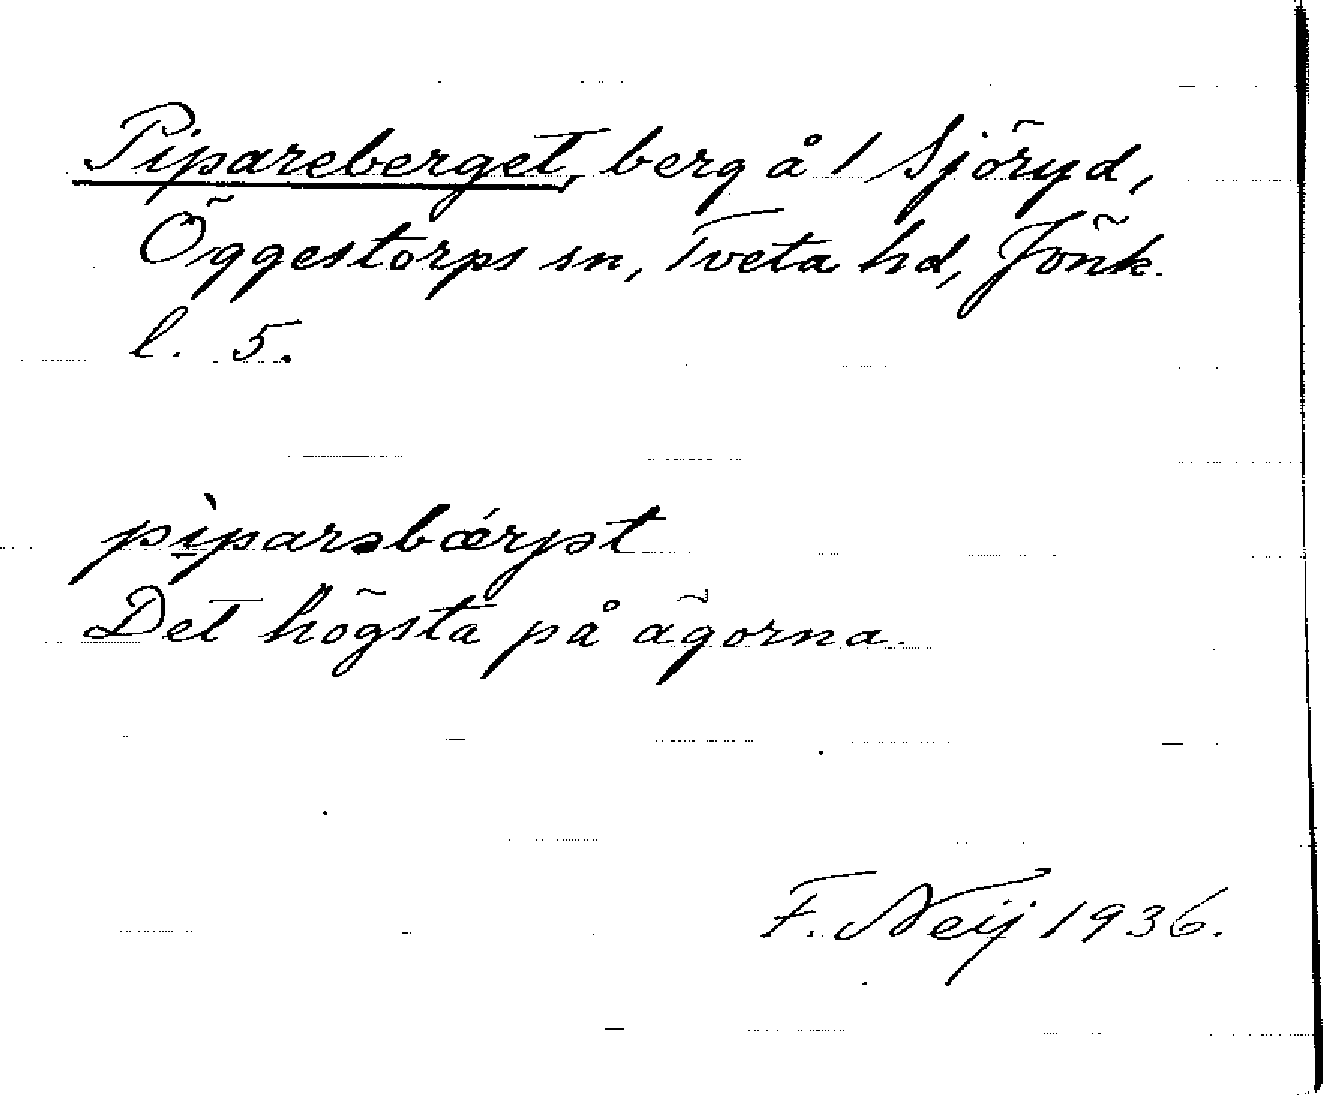 Pipareberget, berg å 1 Sjöryd,
Öggestorps sn, Tveta hd, Jönk.
l. 5.
pìparəbǽrjət
Det högsta på ägorna.
F. Neij 1936.